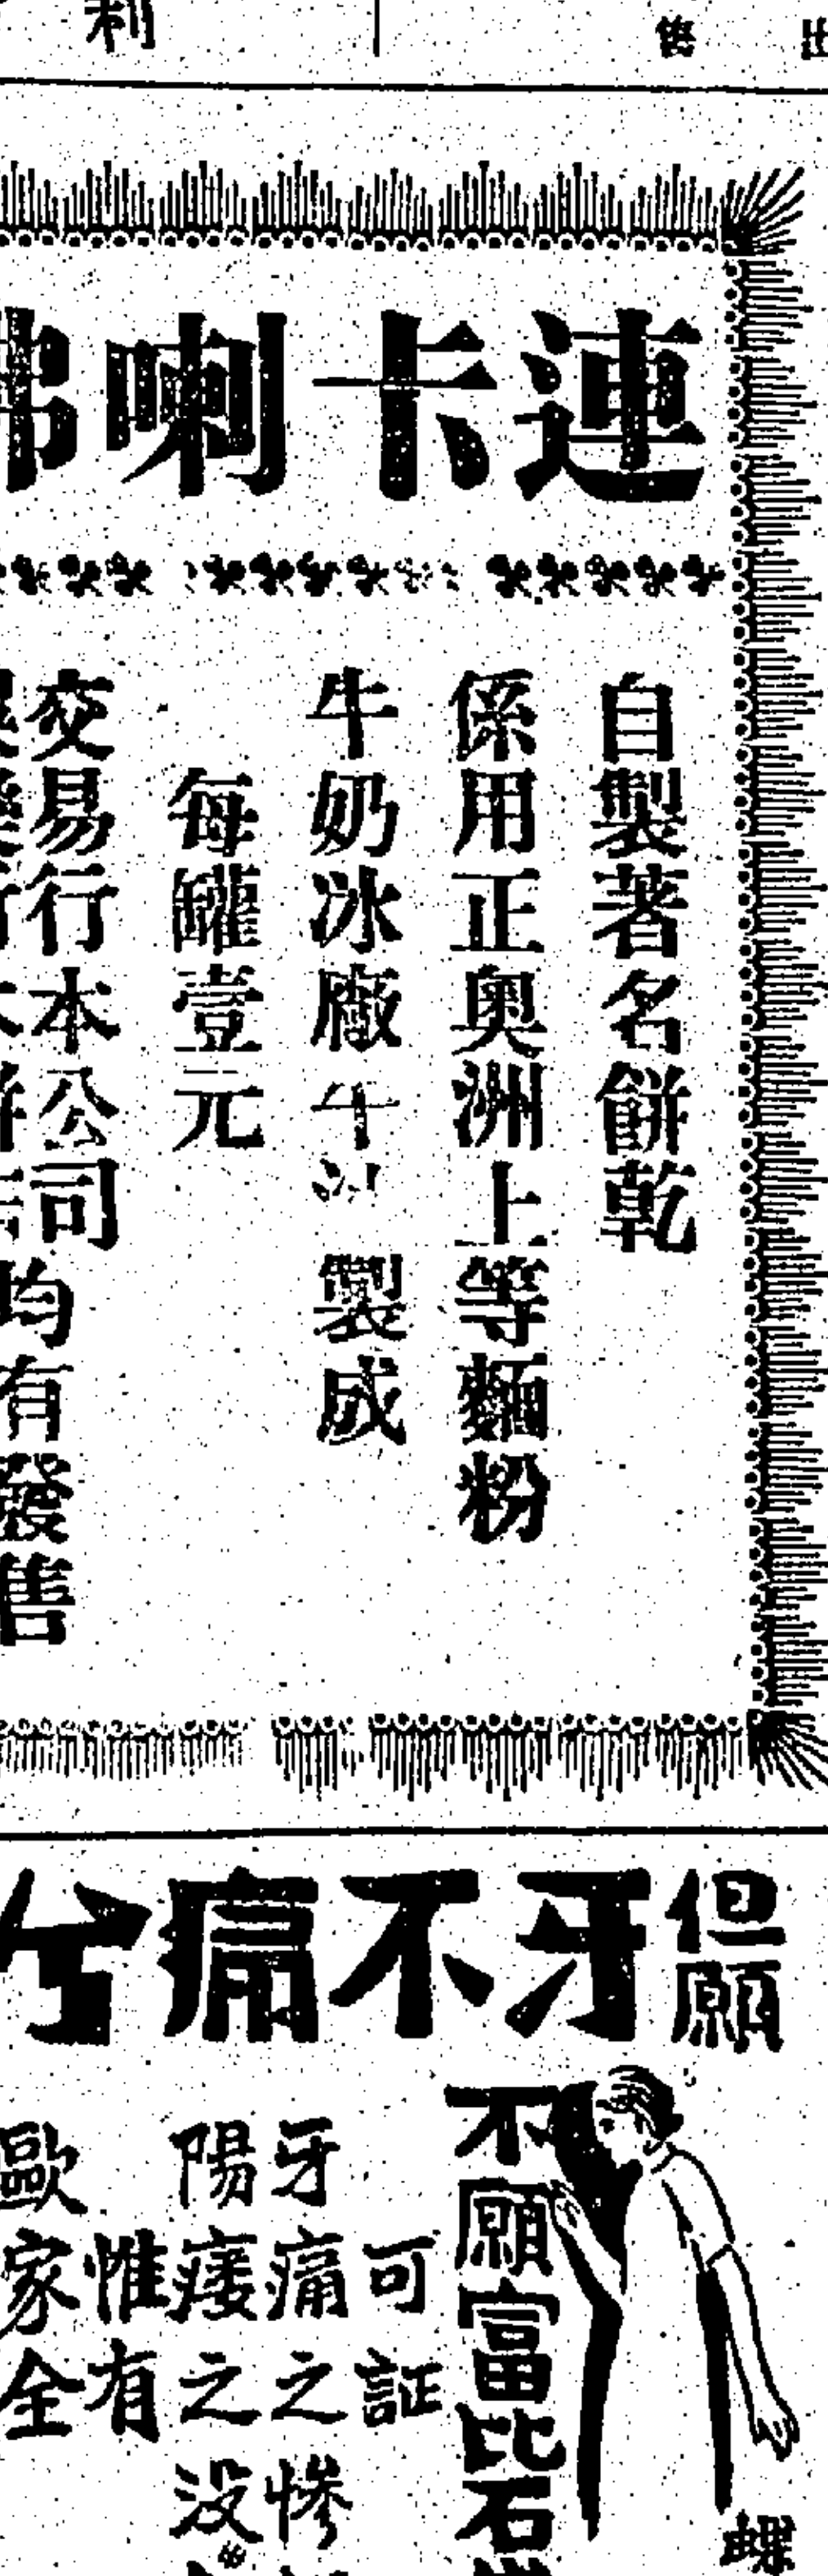 利
售
出
連卡喇
自製著名餅乾
係用正奧洲上等麵粉
牛奶冰廠牛油製成
每罐壹元
交易行本公司
均有發售
但願
牙不痛
不願富比石
可証
牙痛之慘
陽痿之没
惟有
歐家全